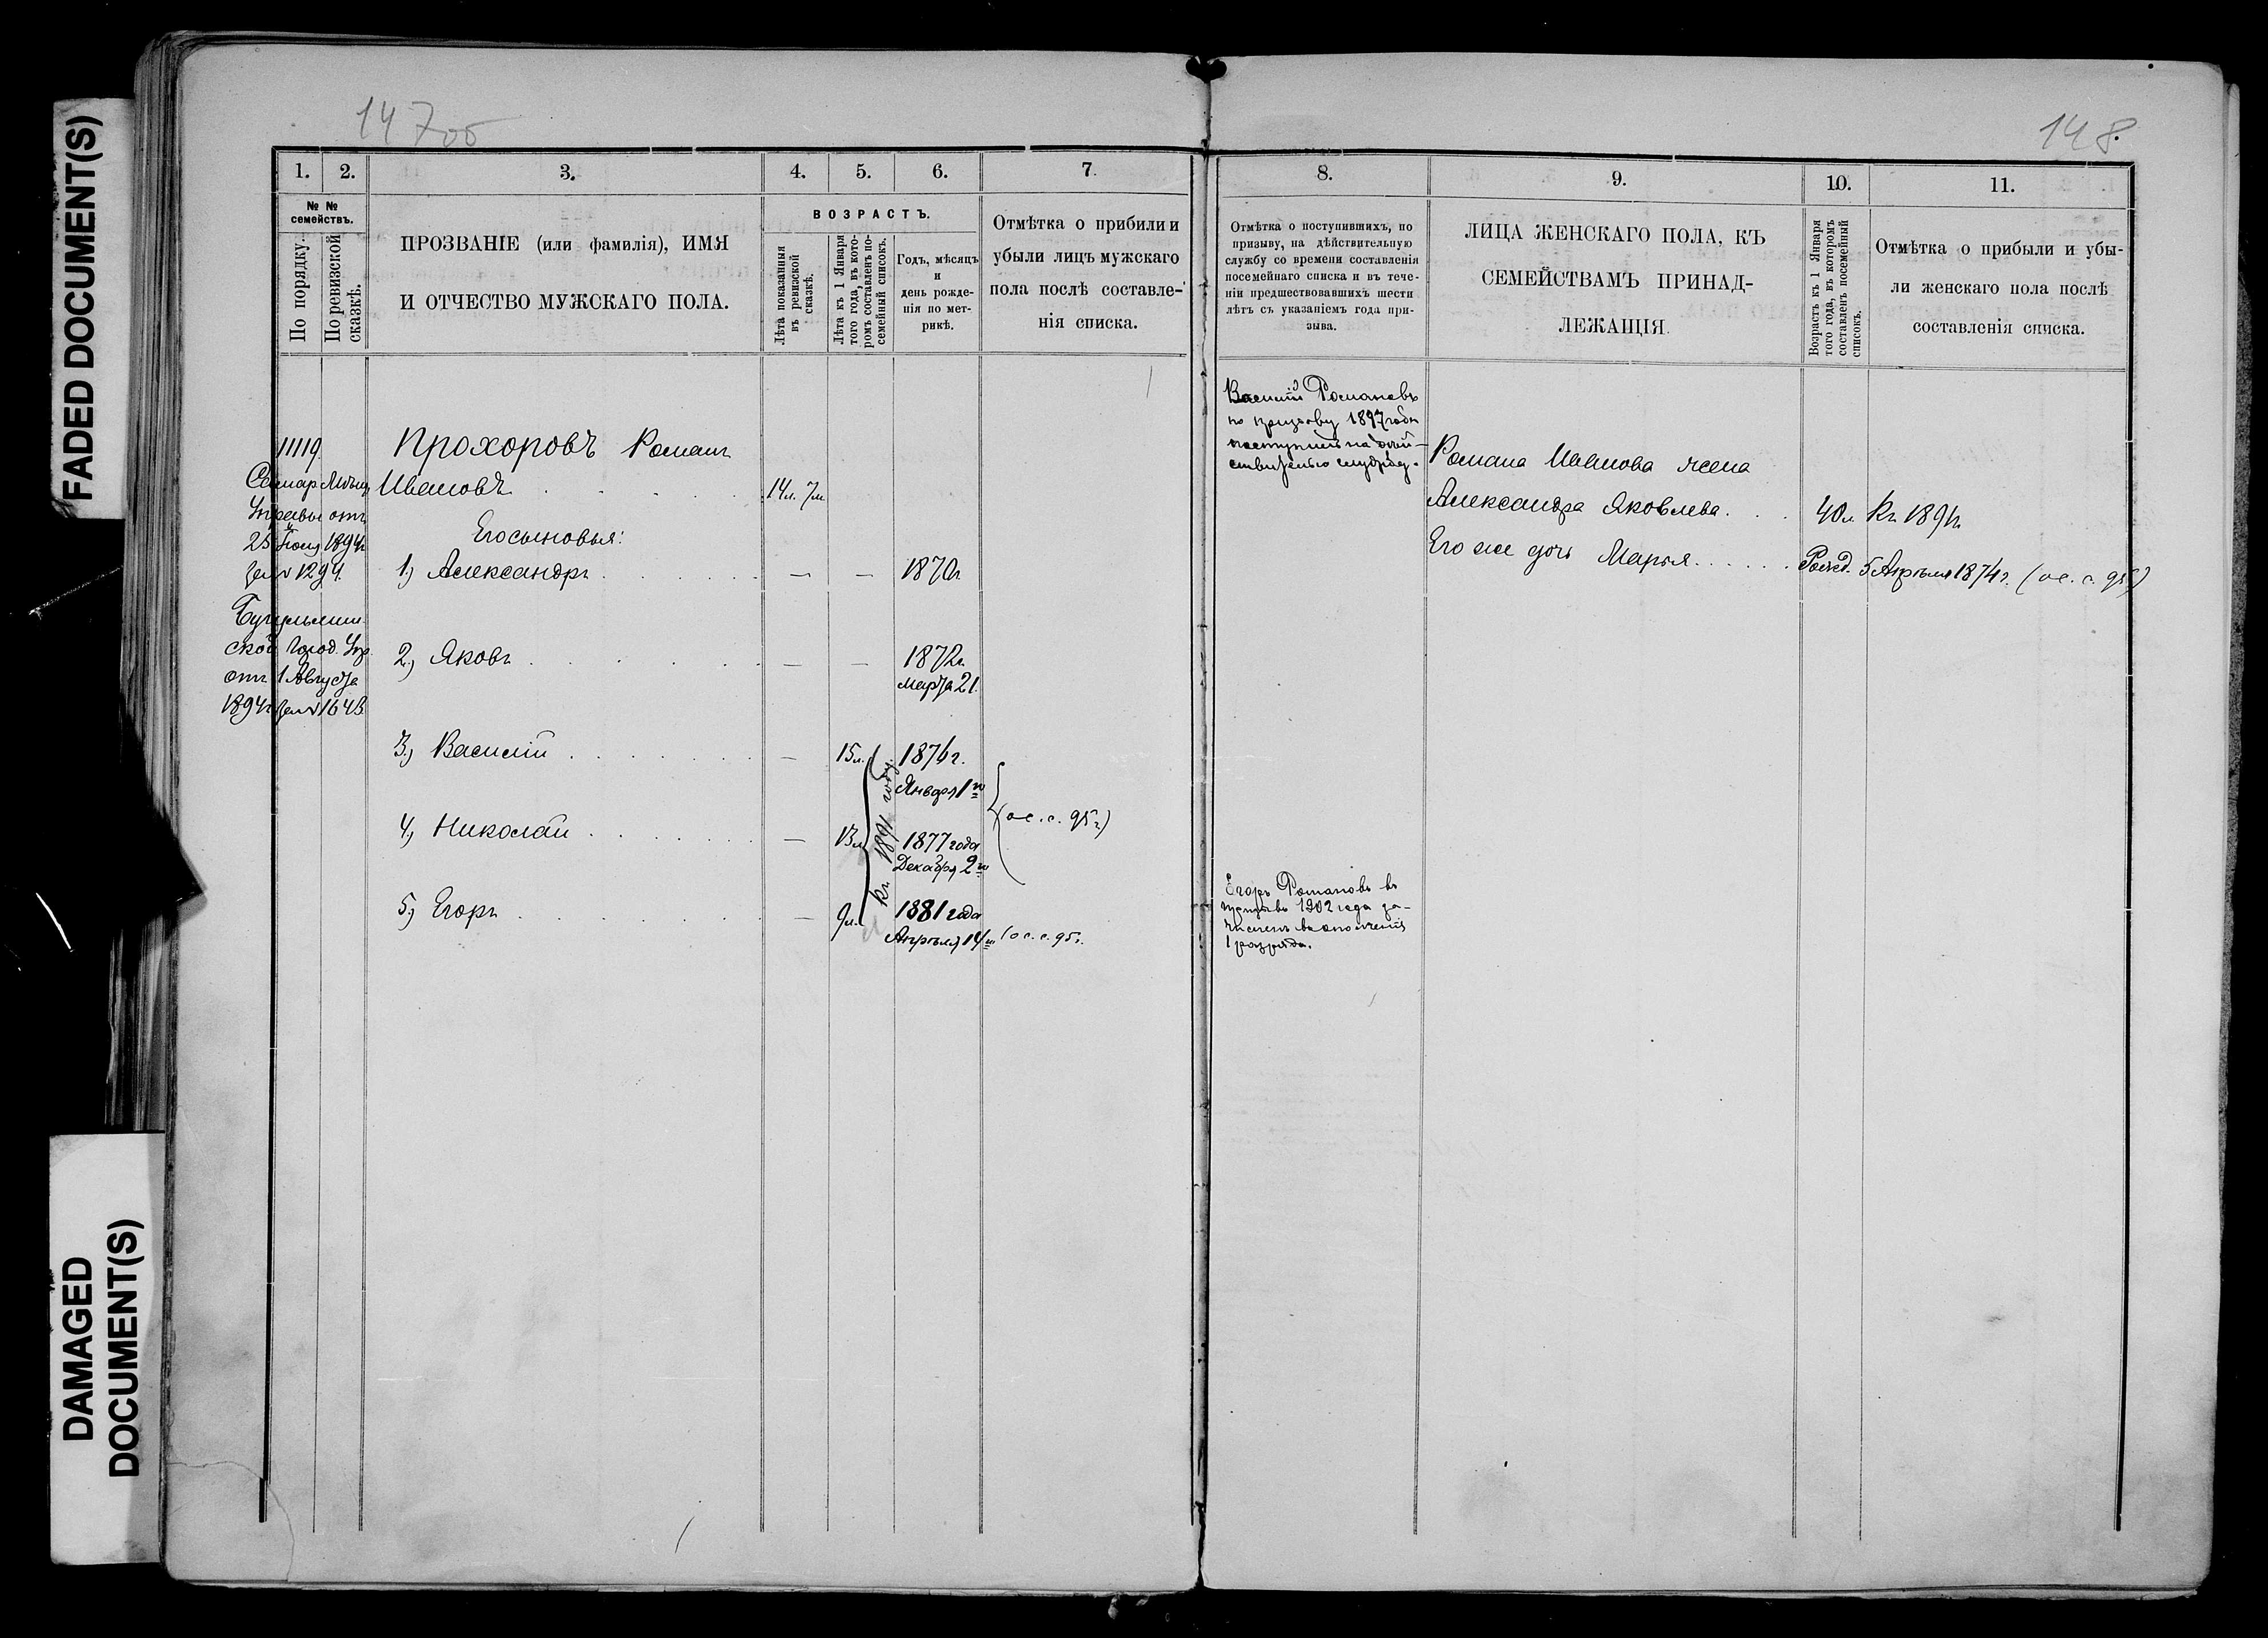 FADED DOCUMENT(S)
DAMAGED
DOCUMENT(S)
147об
148.
1. 2. 3. 4. 5. 6. 7.
№ №
семействъ.
По порядку.
По ревизской
сказкѣ.
ПРОЗВАНІЕ (или фамилія), ИМЯ
И ОТЧЕСТВО МУЖСКАГО ПОЛА.
ВОЗРАСТЪ.
Лѣта показанныя
въ ревизской
сказкѣ.
Лѣта къ 1 Января
того года, въ кото-
ромъ составленъ по-
семейный списокъ.
Годъ, мѣсяцъ
и
день рожде-
нія по мет-
рикѣ.
Отмѣтка о прибили и
убыли лицъ мужскаго
пола послѣ составле-
нія списка.
11119.
Самар Мѣщ
Управы отъ
25 Іюня 1894г
за № 1294.
Бугульмин
ской Город. Упр.
отъ 1 Августа
1894г за № 1643
Прохоровъ Романъ
Ивановъ 14л. 7м.
Его сыновья:
1.) Александръ — — 1870г
2.) Яковъ — — 1872г.
Марта 21.
3.) Василій — 15л. 1876г.
Января 1го
4.) Николай — 13л 1877 года
Декабря 2го
5.) Егоръ — 9л. 1881 года
Апрѣля 14го (ос. с. 95г.
къ 1891 году.
(ос. с. 95г.)
8. 9. 10. 11.
Отмѣтка о поступившихъ, по
призыву, на дѣйствительную
службу со времени составленія
посемейнаго списка и въ тече-
ніи предшествовавшихъ шести
лѣтъ съ указаніемъ года при-
зыва.
ЛИЦА ЖЕНСКАГО ПОЛА, КЪ
СЕМЕЙСТВАМЪ ПРИНАД-
ЛЕЖАЩІЯ.
Возрастъ къ 1 Января
того года, въ которомъ
составленъ посемейный
списокъ.
Отмѣтка о прибыли и убы-
ли женскаго пола послѣ
составленія списка.
Василій Романовъ
по призыву 1897 года
поступилъ на дѣй-
ствительн службу.
Романа Иванова жена
Александра Яковлева. 40л. къ 1891г.
Его же дочь Марья Рожд. 5 Апрѣля 1874г. (ос. с. 95г)
Егоръ Романовъ въ
призывъ 1902 года за-
численъ въ ополченіе
1 разряда.